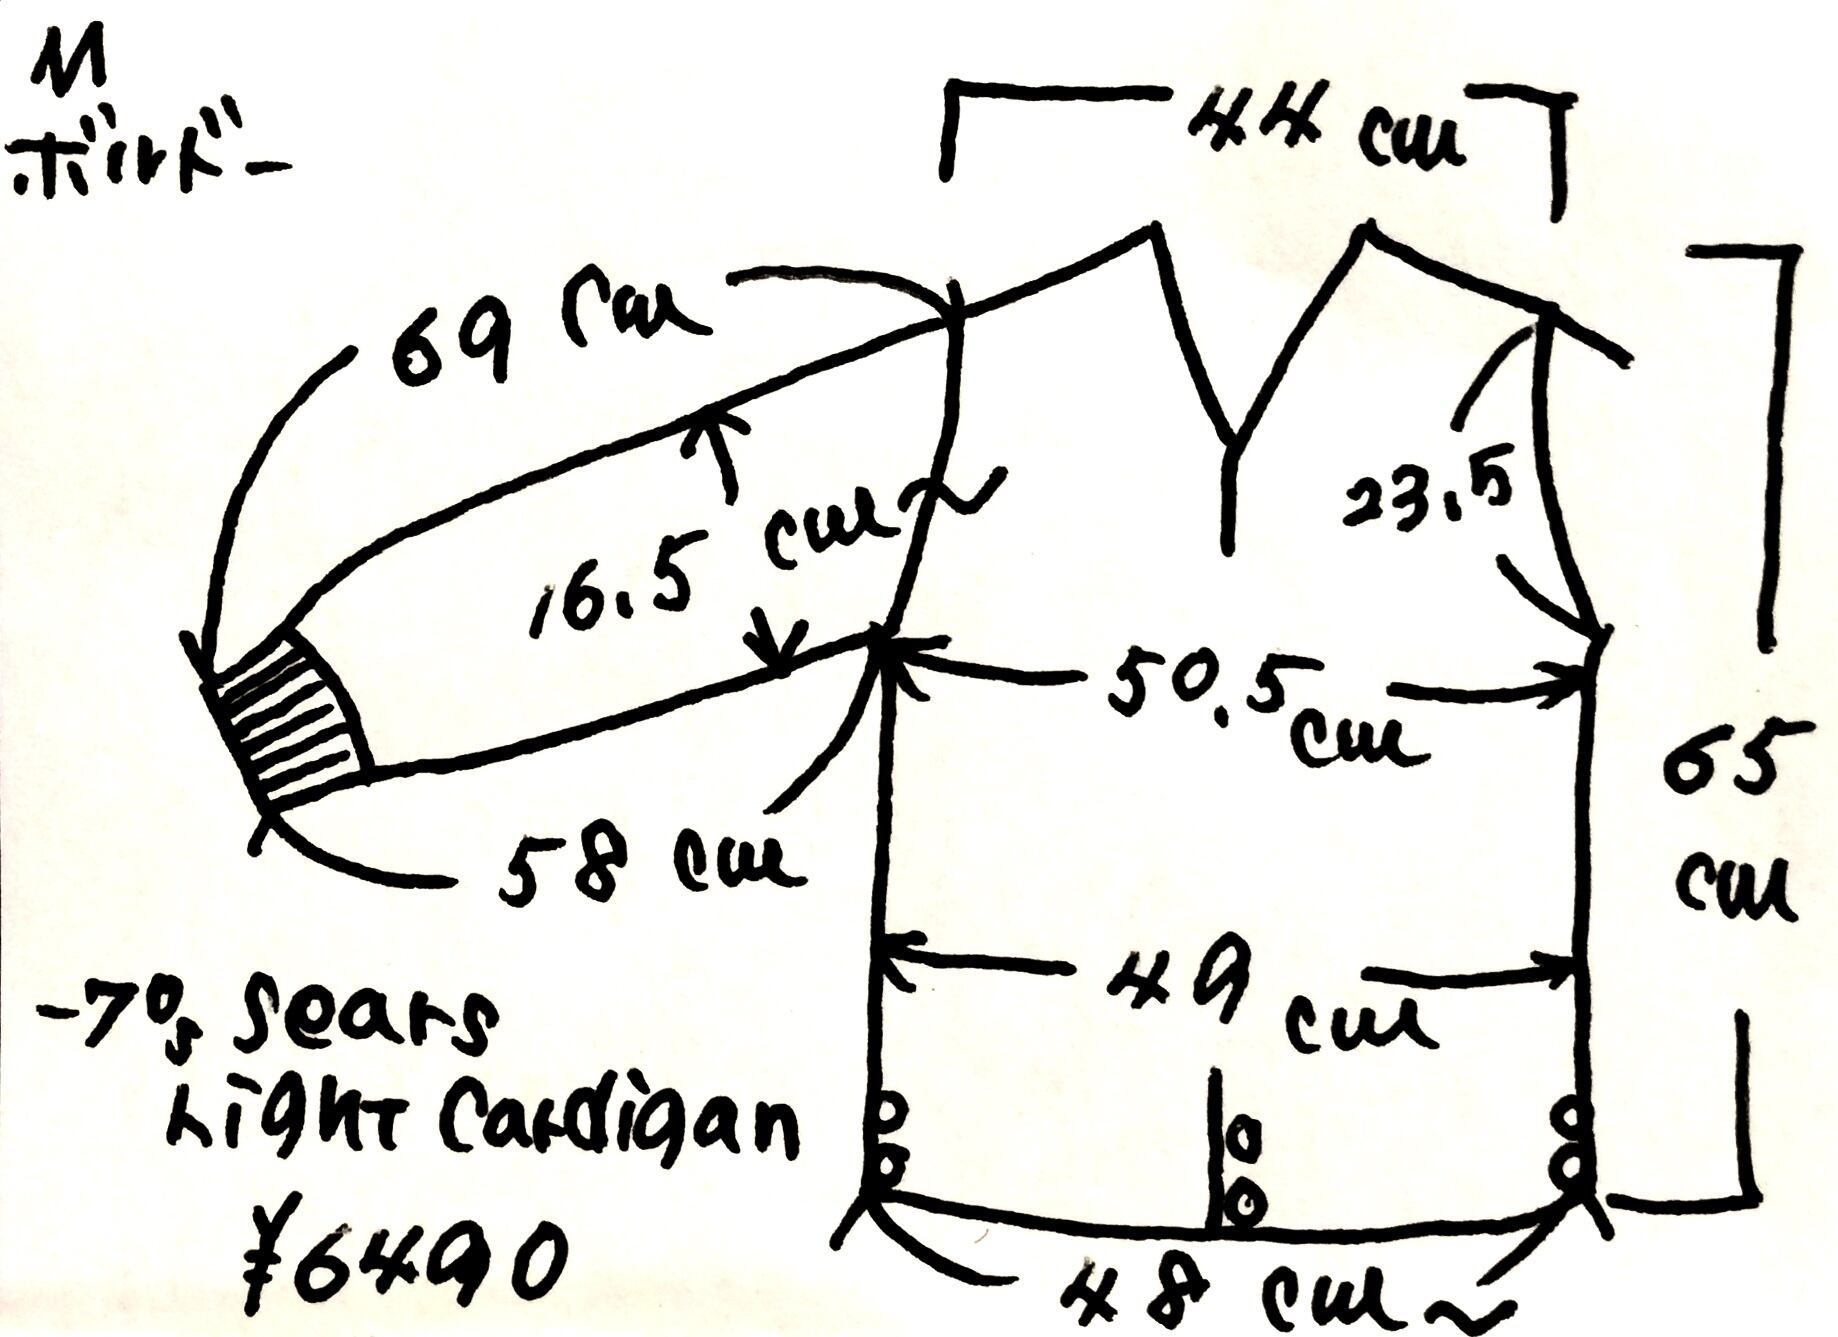 M
ボルドー
44 cm
69 cm
23.5
16.5 cm~
50.5 cm
65 cm
58 cm
49 cm
-70s sears
Light Cardigan
¥6490
48 cm~